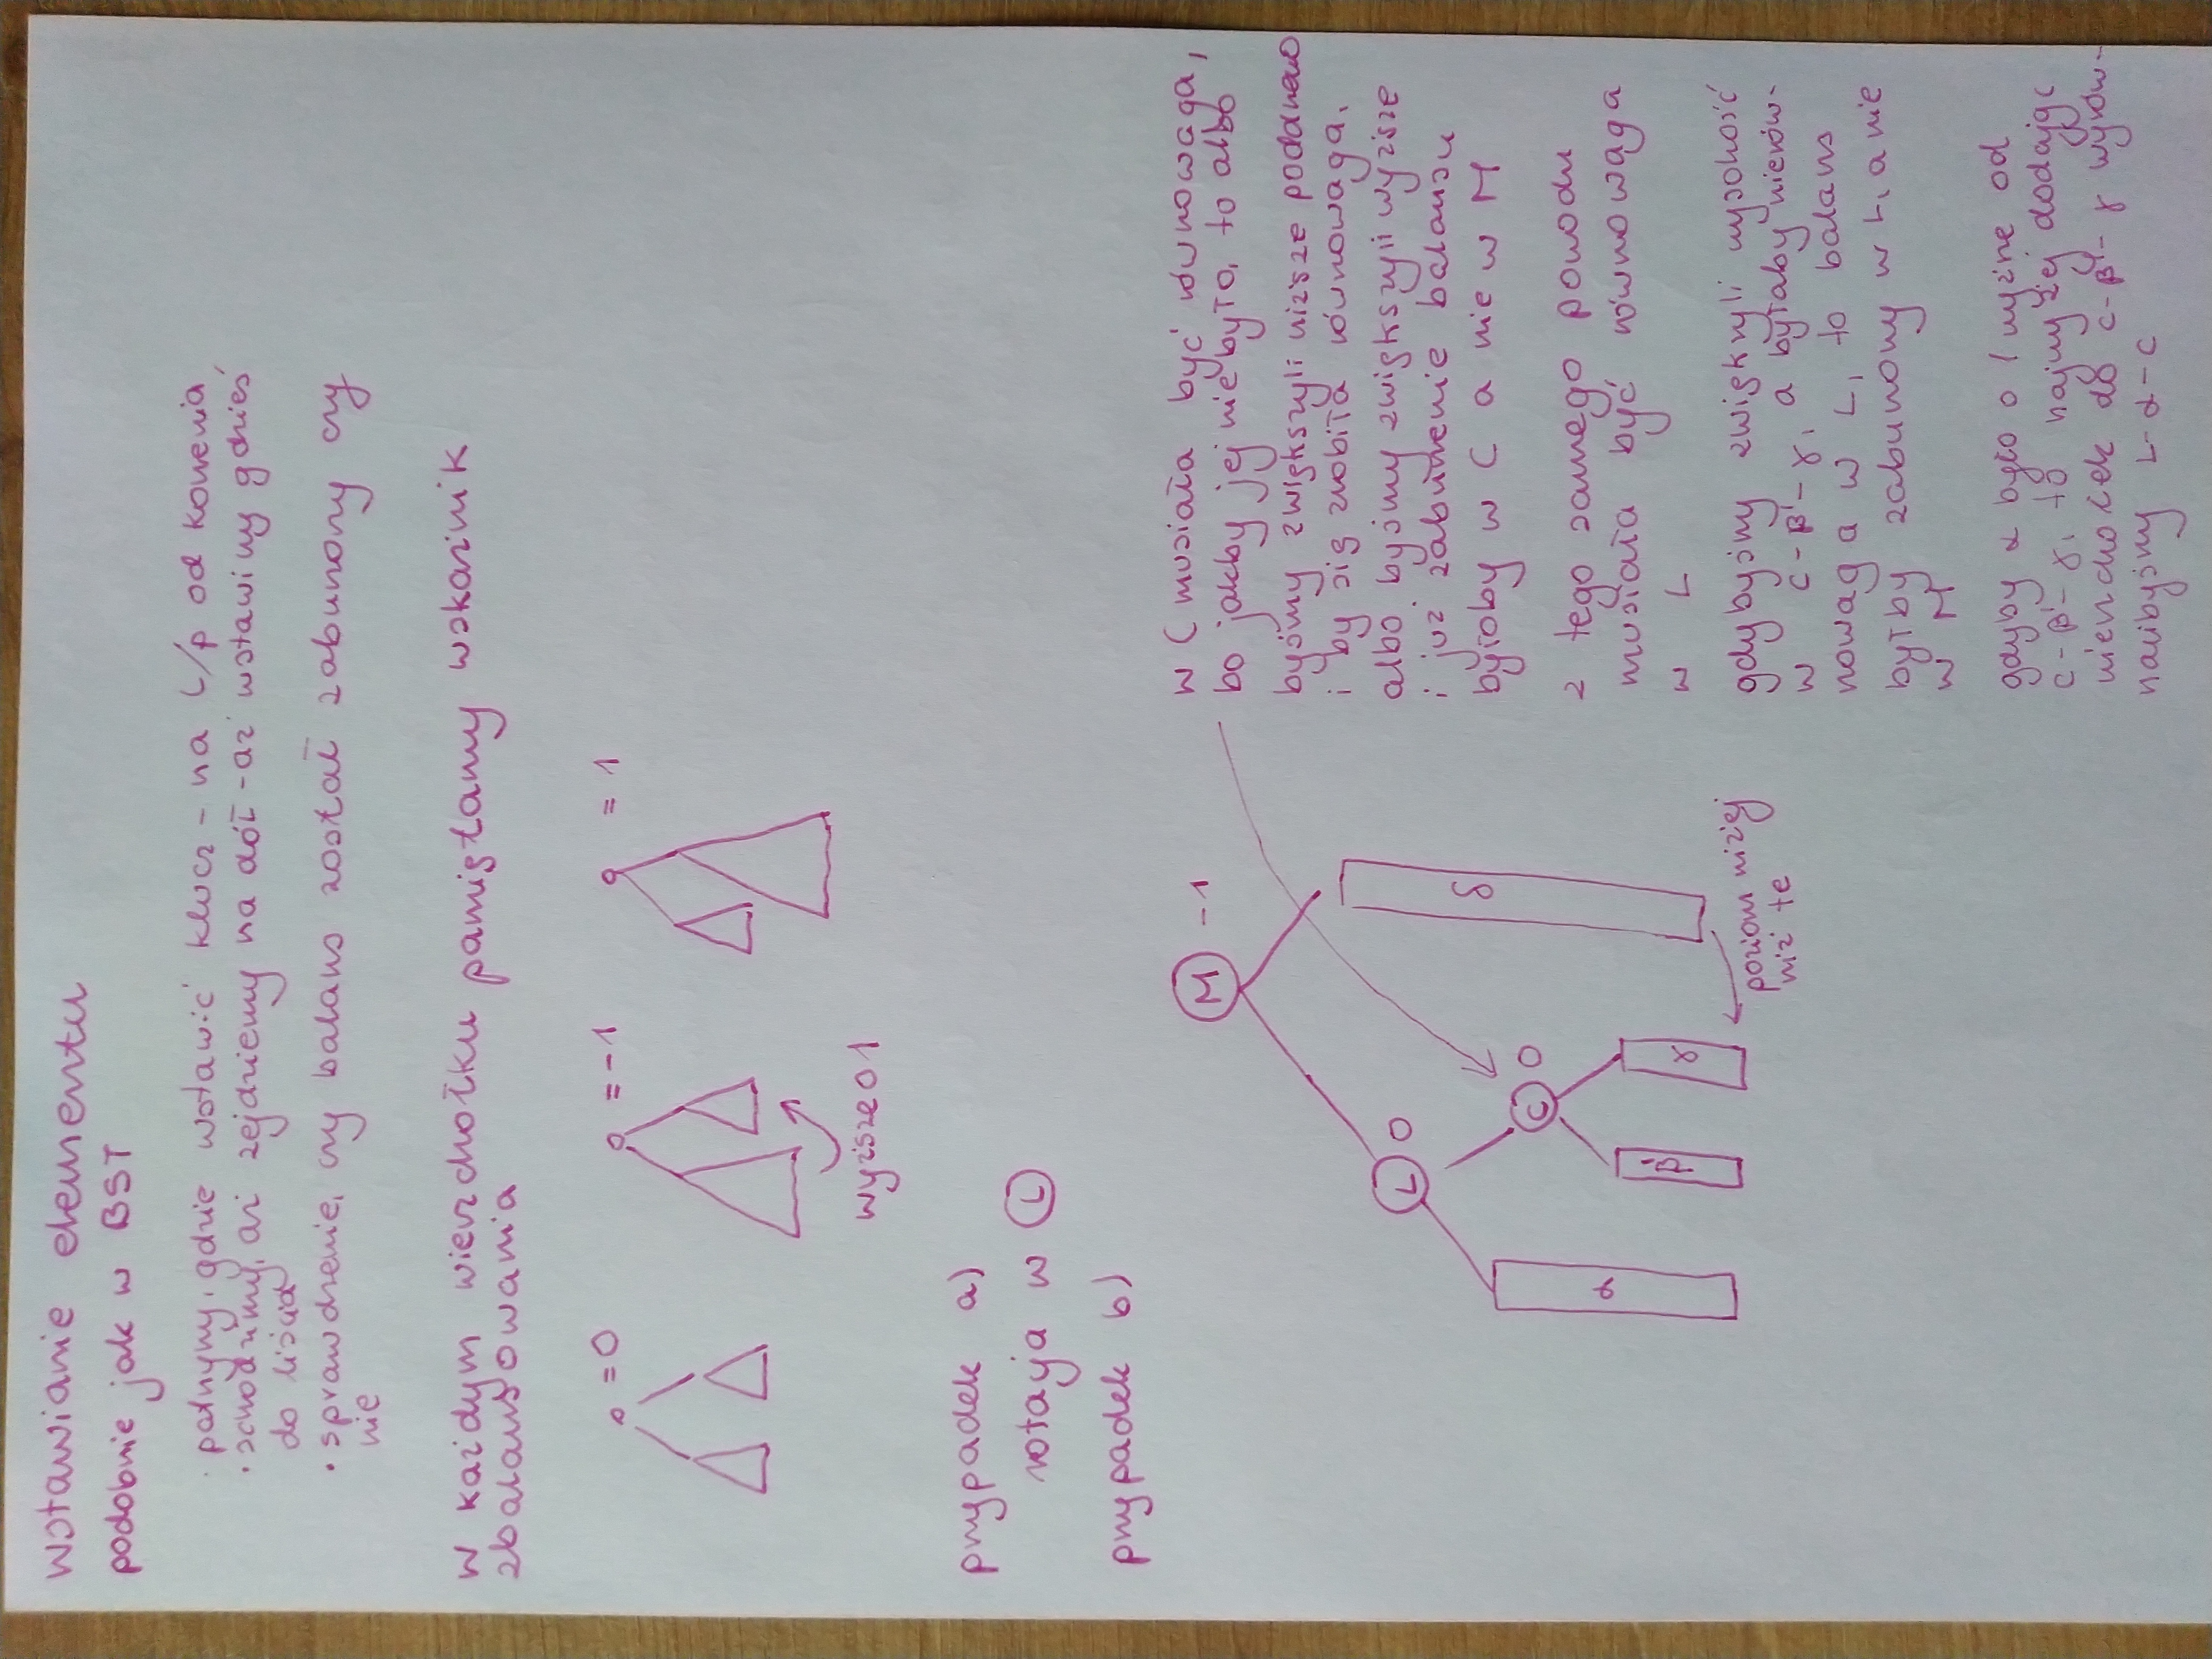 wstawianie elementu
podobnie jak w BST
· patrzymy, gdzie wstawić klucz - na l/p od korzenia
· schodzimy, aż zejdziemy na dół - aż wstawimy gdzieś
do liścia
· sprawdzenie, czy balans został zaburzony czy
nie
w każdym wierzchołku pamiętamy wskaźnik
zbalansowania
= 0
= -1
= 1
wyższe o 1
przypadek a)
rotacja w L
przypadek b)
M -1
L 0
C 0
α
β'
γ
δ
poziom niżej
niż te
w C musiała być równowaga,
bo jakby jej nie było, to albo
byśmy zwiększyli niższe poddrzewo
i by się zrobiła równowaga,
albo byśmy zwiększyli wyższe
i już zaburzenie balansu
byłoby w C a nie w M
z tego samego powodu
musiała być równowaga
w L
gdybyśmy zwiększyli wysokość
w C-β'-γ, a byłaby nierów-
nowaga w L, to balans
byłby zaburzony w L, a nie
w M
gdyby α było o 1 wyższe od
C-β'-γ, to najwyżej dodając
wierzchołek do C-β'-γ wyrów-
nalibyśmy L-α-C